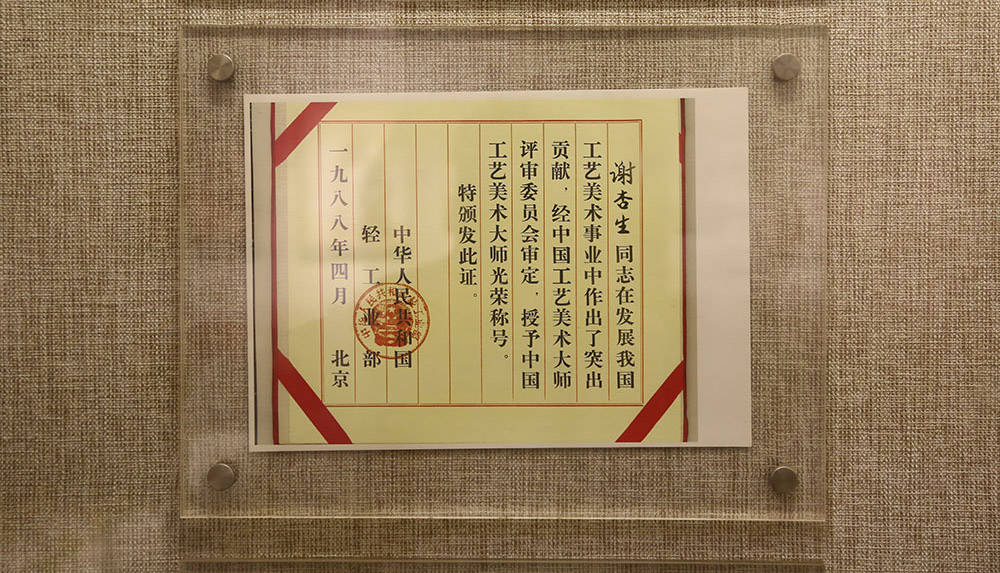 谢杏生同志在发展我国
工艺美术事业中作出了突出
贡献，经中国工艺美术大师
评审委员会审定，授予中国
工艺美术大师光荣称号。
特颁发此证。
中华人民共和国
轻工业部
一九八八年四月 北京